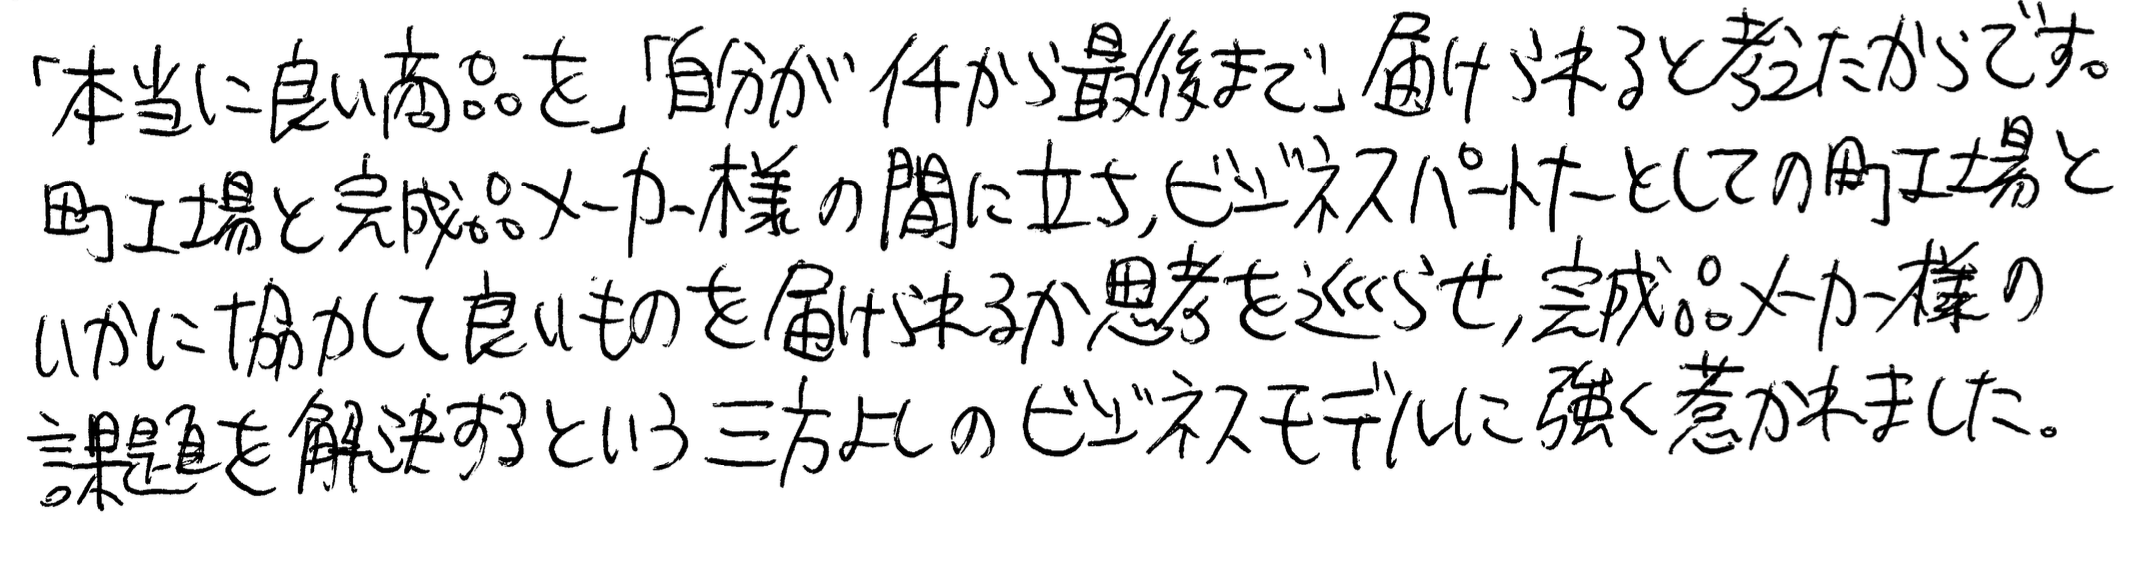 「本当に良い商品を」「自分が 1から最後まで」届けられると考えたからです。
町工場と完成品メーカー様の間に立ち,ビジネスパートナーとしての町工場と
いかに協力して良いものを届けられるか思考を巡らせ,完成品メーカー様の
課題を解決するという三方よしのビジネスモデルに強く惹かれました。